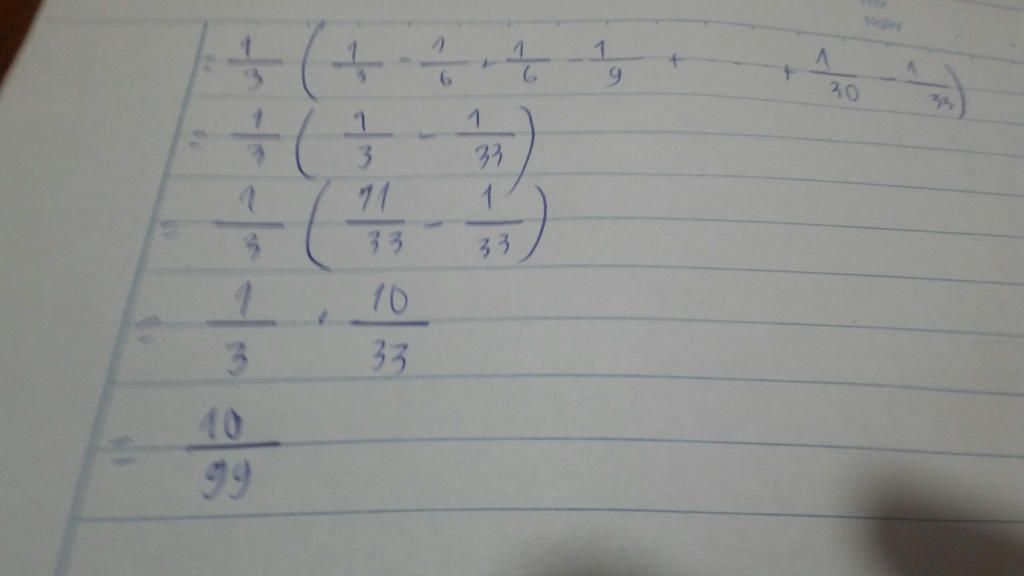 = 1/3 ( 1/3 - 1/6 + 1/6 - 1/9 + ----- + 1/30 - 1/33 )
= 1/3 ( 1/3 - 1/33 )
= 1/3 ( 11/33 - 1/33 )
= 1/3 . 10/33
= 10/99